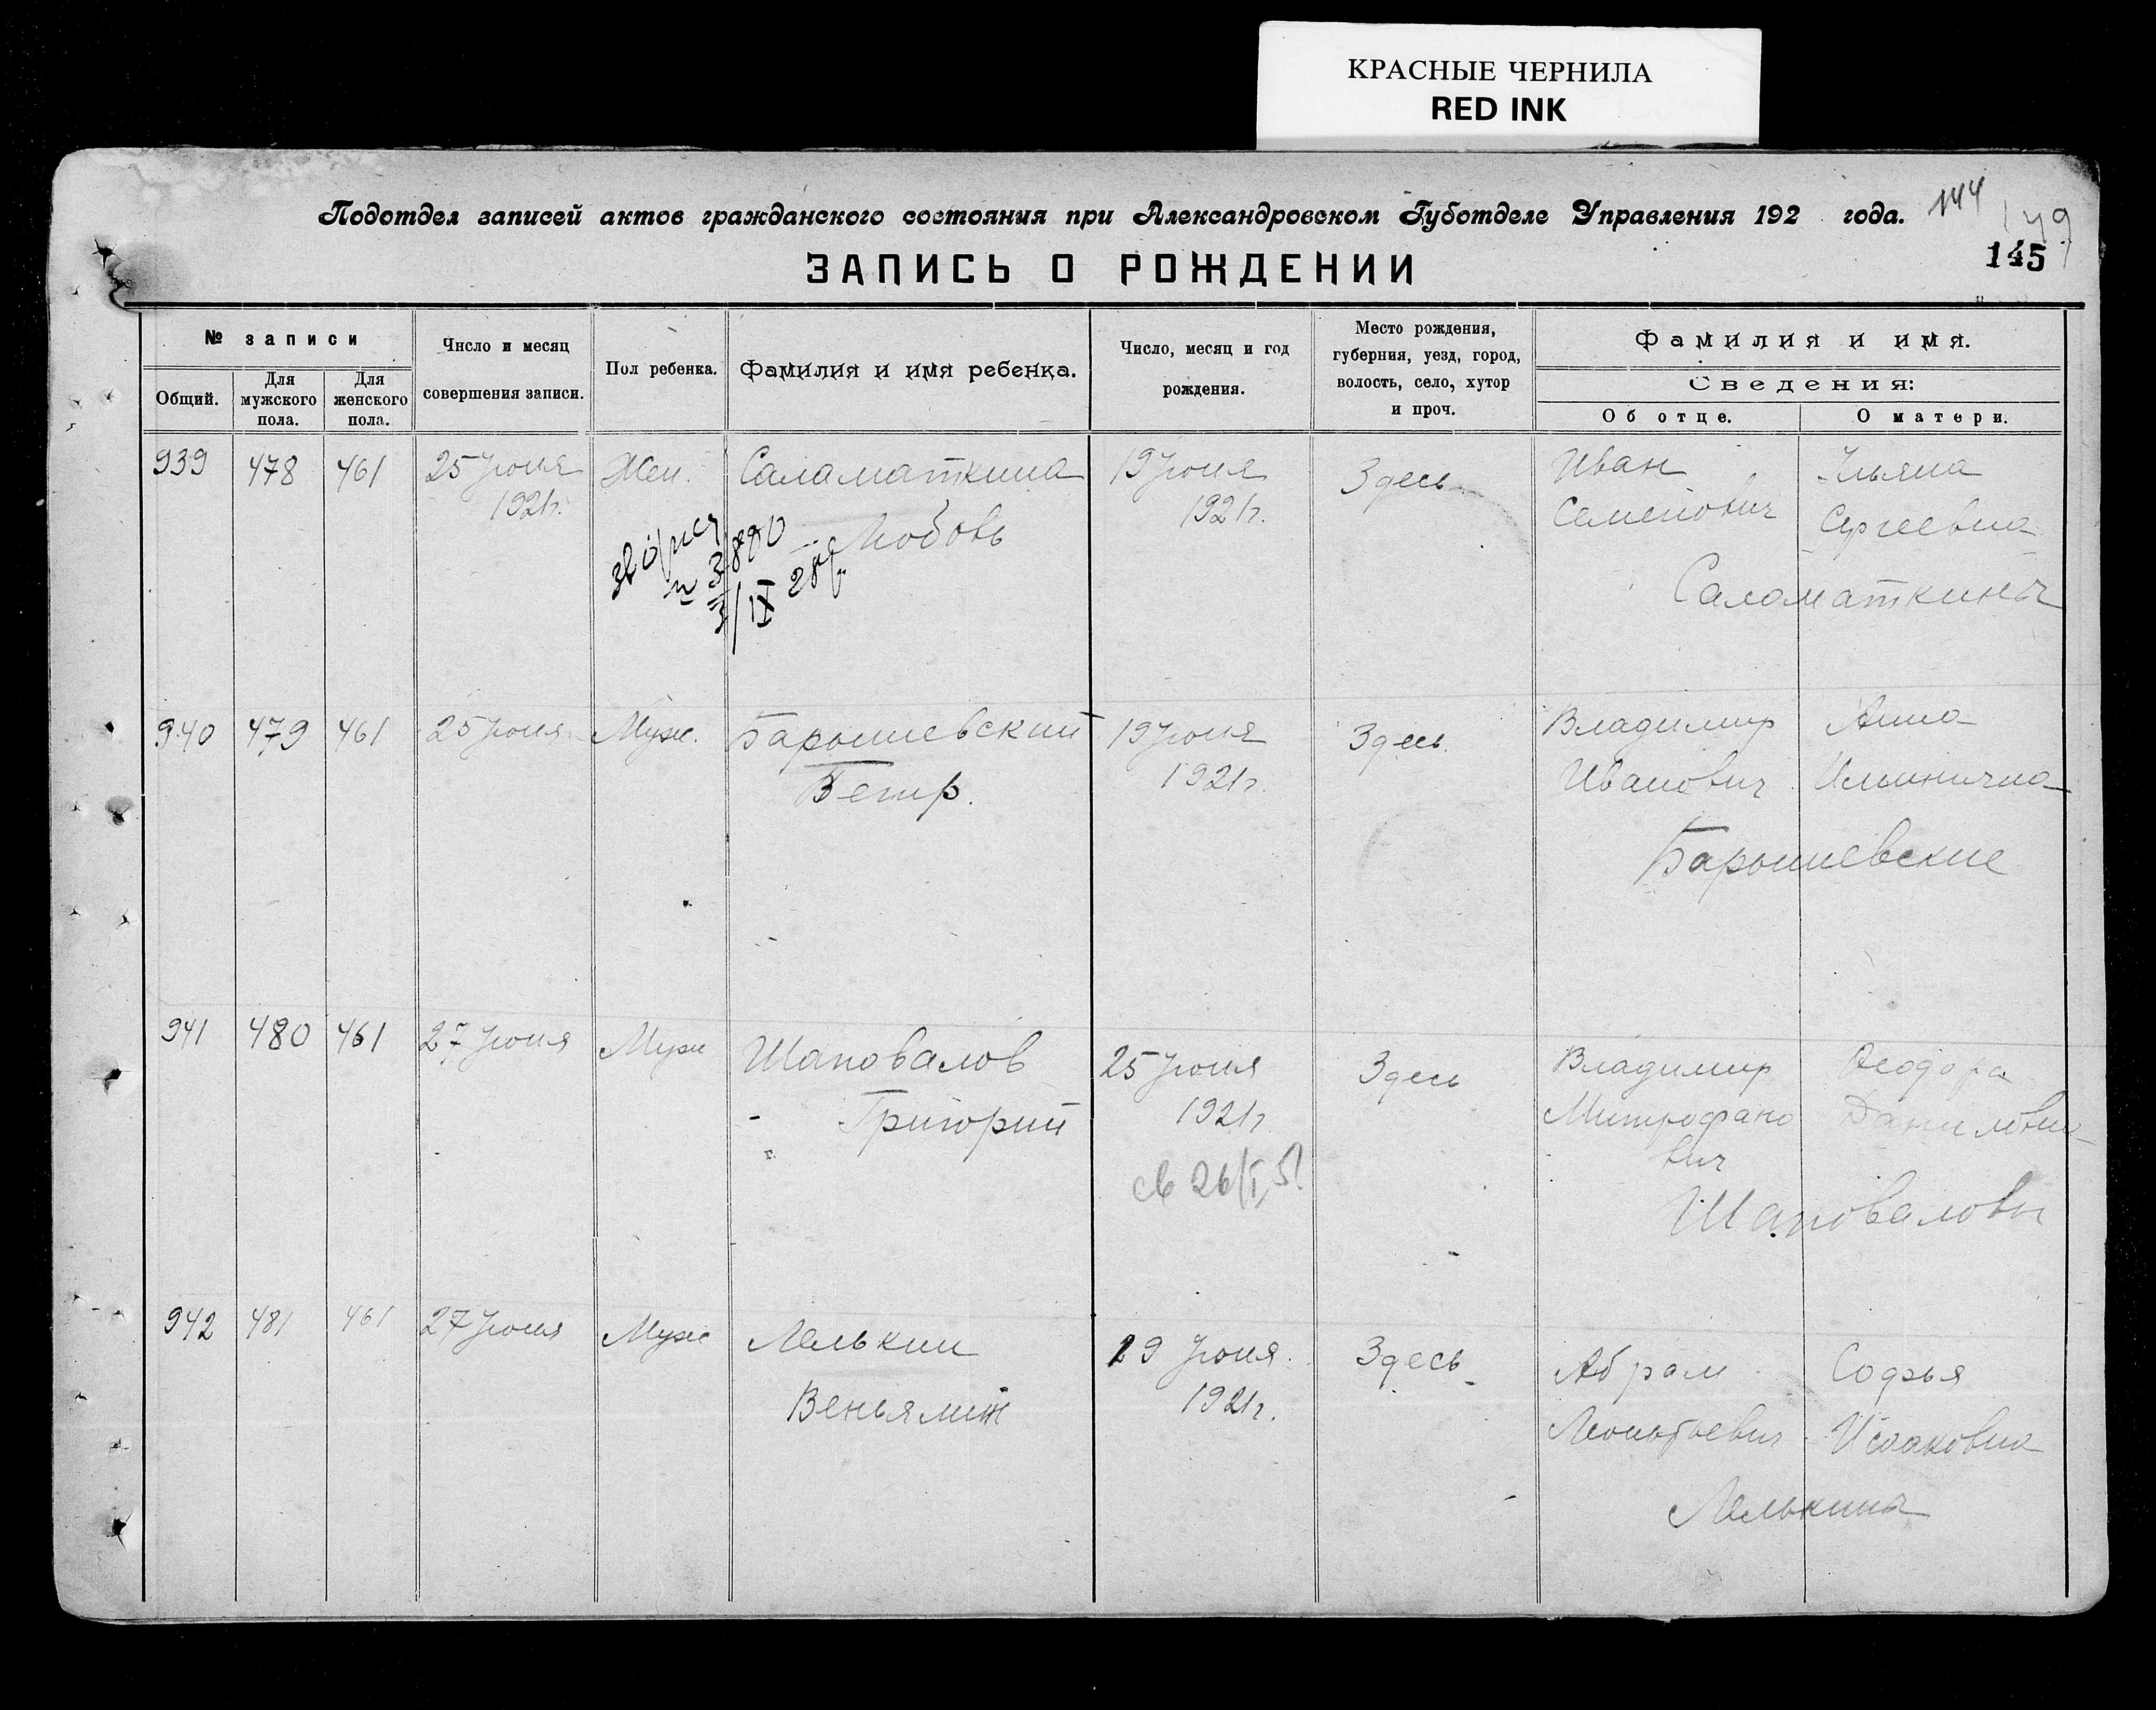 КРАСНЫЕ ЧЕРНИЛА
RED INK
Подотдел записей актов гражданского состояния при Александровском Губотделе Управления 192 года.
144
149
145
ЗАПИСЬ О РОЖДЕНИИ
№ записи
Общий.
Для мужского пола.
Для женского пола.
Число и месяц совершения записи.
Пол ребенка.
Фамилия и имя ребенка.
Число, месяц и год рождения.
Место рождения, губерния, уезд, город, волость, село, хутор и проч.
Фамилия и имя.
Сведения:
Об отце.
О матери.
939 478 461 25 Июня 1921г. Жен. Саламаткина Любовь 19 Июня 1921г. Здесь Иван Семенович Ульяна Сергеевна
Саломаткины
3/IX 28г.
940 479 461 25 Июня Муж. Барышевский Петр. 19 Июня 1921г. Здесь. Владимир Иванович Анна Ильинична
Барышевские
941 480 461 27 Июня Муж Шаповалов Григорий 25 Июня 1921г. Здесь Владимир Митрофанович Феодора Даниловна
св 26/I, 51
Шаповаловы
942 481 461 27 Июня Муж Лелькин Веньямин 19 Июня 1921г. Здесь Абрам Софья Исааковна
Лелькины